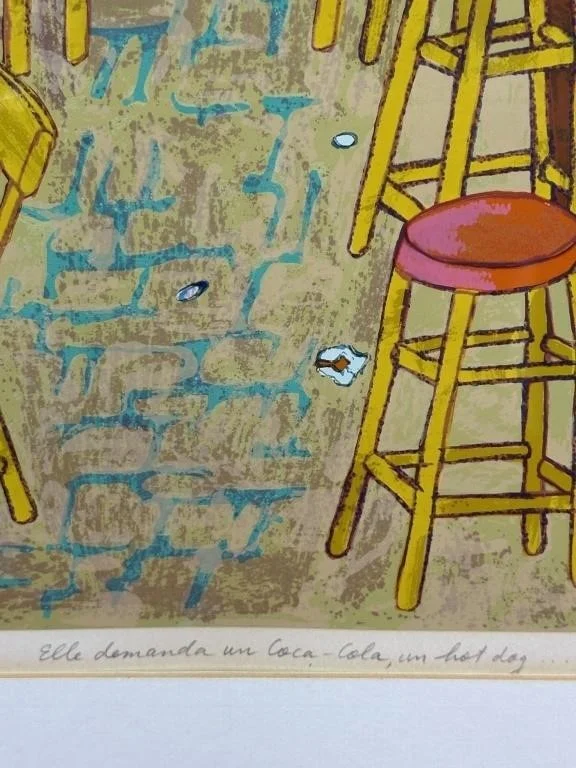 Elle demanda un Coca-Cola, un hot dog ...